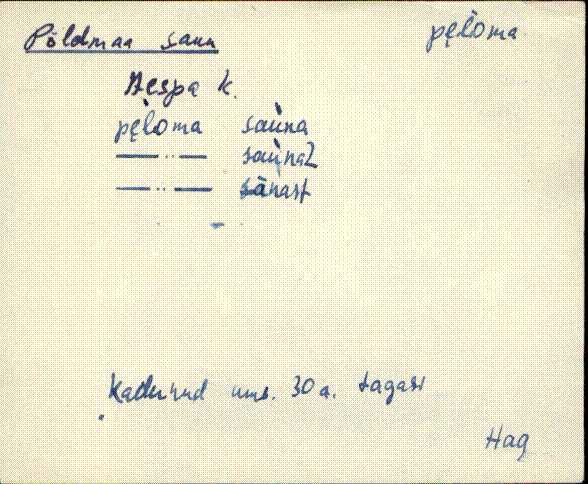 Põldmaa saun
pę̀loma
Aespa k.
pę̀loma saùna
—..— saùnaZ
—..— sànast
Kadunud umb. 30 a. tagasi
Hag